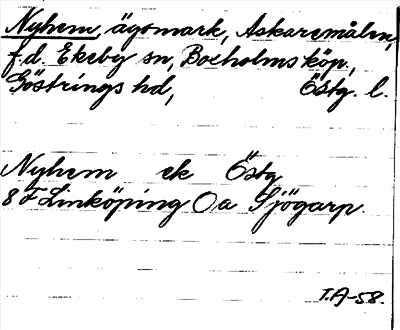 Nyhem, ägomark, Askaremålen,
f.d. Ekeby sn, Boxholms köp,
Göstrings hd, Östg. l.
Nyhem ek Östg
8 F Linköping Oa Sjögarp.
T.A-58.